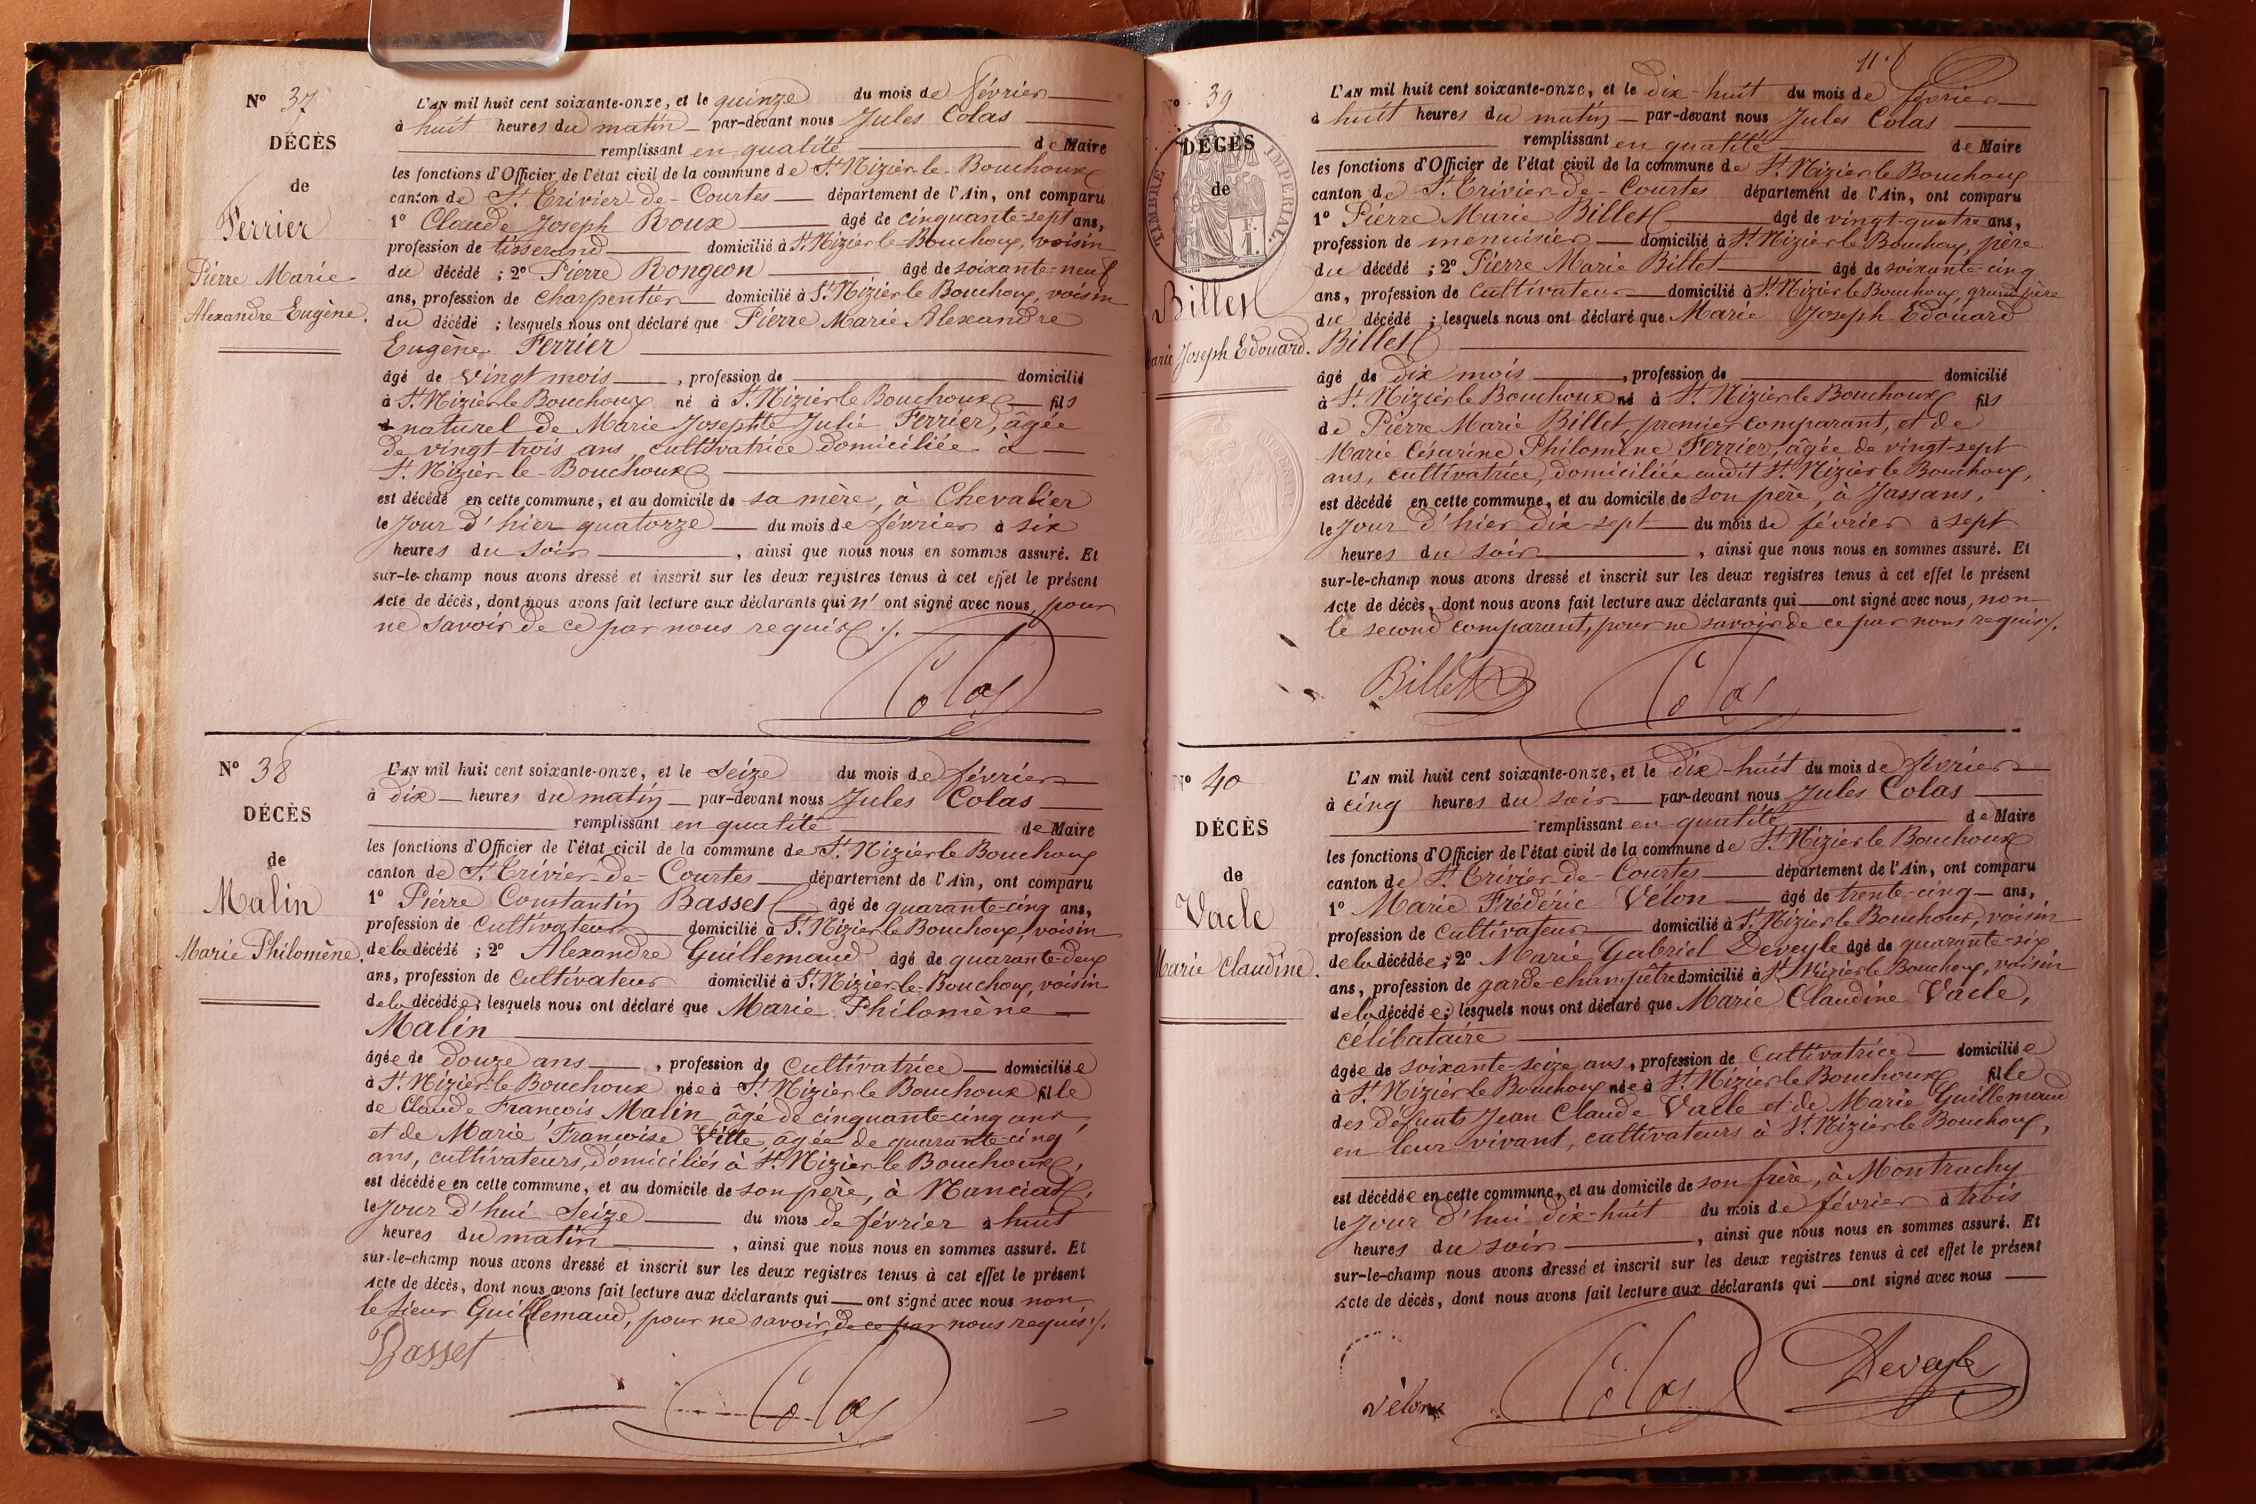 N° 37
DÉCÈS
de
Ferrier
Pierre Marie
Alexandre Eugène.
L'AN mil huit cent soixante-onze, et le quinze du mois de février
à huit heures du matin par-devant nous Jules Colas
remplissant en qualité de Maire
les fonctions d'Officier de l'état civil de la commune de St Nizier-le-Bouchoux
canton de St Trivier-de-Courtes département de l'Ain, ont comparu
1° Claude Joseph Roux âgé de cinquante-sept ans,
profession de tisserand domicilié à St Nizier-le-Bouchoux, voisin
du décédé ; 2° Pierre Rongeon âgé de soixante-neuf
ans, profession de charpentier domicilié à St Nizier le Bouchoux, voisin
du décédé ; lesquels nous ont déclaré que Pierre Marie Alexandre
Eugène Ferrier
âgé de vingt mois, profession de domicilié
à St Nizier le Bouchoux né à St Nizier le Bouchoux fils
naturel de Marie Josephte Julie Ferrier, âgée
de vingt-trois ans, cultivatrice domiciliée à
St Nizier-le-Bouchoux
est décédé en cette commune, et au domicile de sa mère, à Chevalier
le jour d'hier quatorze du mois de février à six
heures du soir, ainsi que nous nous en sommes assuré. Et
sur-le-champ nous avons dressé et inscrit sur les deux registres tenus à cet effet le présent
Acte de décès, dont nous avons fait lecture aux déclarants qui n'ont signé avec nous, pour
ne savoir de ce par nous requis ./.
Colas
N° 38
DÉCÈS
de
Malin
Marie Philomène.
L'AN mil huit cent soixante-onze, et le seize du mois de février
à dix heures du matin par-devant nous Jules Colas
remplissant en qualité de Maire
les fonctions d'Officier de l'état civil de la commune de St Nizier le Bouchoux
canton de St Trivier-de-Courtes département de l'Ain, ont comparu
1° Pierre Constantin Basset âgé de quarante-cinq ans,
profession de cultivateur domicilié à St Nizier le Bouchoux, voisin
de la décédé ; 2° Alexandre Guillemaud âgé de quarante-deux
ans, profession de cultivateur domicilié à St Nizier-le-Bouchoux, voisin
de la décédée ; lesquels nous ont déclaré que Marie Philomène
Malin
âgée de douze ans, profession de cultivatrice domiciliée
à St Nizier le Bouchoux née à St Nizier le Bouchoux fille
de Claude François Malin, âgé de cinquante-cinq ans,
et de Marie Françoise Ville, âgée de quarante-cinq
ans, cultivateurs, domiciliés à St Nizier-le Bouchoux,
est décédée en cette commune, et au domicile de son père, à Nanciat,
le jour d'hui seize du mois de février à huit
heures du matin, ainsi que nous nous en sommes assuré. Et
sur-le-champ nous avons dressé et inscrit sur les deux registres tenus à cet effet le présent
Acte de décès, dont nous avons fait lecture aux déclarants qui ont signé avec nous non
le sieur Guillemaud, pour ne savoir de ce par nous requis ./.
Basset
Colas
N° 39
DÉCÈS
de
TIMBRE IMPÉRIAL
Billet
Marie Joseph Edouard.
L'AN mil huit cent soixante-onze, et le dix-huit du mois de février
à huit heures du matin par-devant nous Jules Colas
remplissant en qualité de Maire
les fonctions d'Officier de l'état civil de la commune de St Nizier le Bouchoux
canton de St Trivier-de-Courtes département de l'Ain, ont comparu
1° Pierre Marie Billet âgé de vingt-quatre ans,
profession de menuisier domicilié à St Nizier le Bouchoux, père
du décédé ; 2° Pierre Marie Billet âgé de soixante-cinq
ans, profession de cultivateur domicilié à St Nizier le Bouchoux, grand père
du décédé ; lesquels nous ont déclaré que Marie Joseph Edouard
Billet
âgé de dix mois, profession de domicilié
à St Nizier le Bouchoux né à St Nizier le Bouchoux fils
de Pierre Marie Billet, premier comparant, et de
Marie Césarine Philomène Ferrier, âgée de vingt-sept
ans, cultivatrice, domiciliée audit St Nizier le Bouchoux,
est décédé en cette commune, et au domicile de son père, à Jassans,
le jour d'hier dix-sept du mois de février à sept
heures du soir, ainsi que nous nous en sommes assuré. Et
sur-le-champ nous avons dressé et inscrit sur les deux registres tenus à cet effet le présent
Acte de décès, dont nous avons fait lecture aux déclarants qui ont signé avec nous, non
le second comparant, pour ne savoir de ce par nous requis ./.
Billet
Colas
N° 40
DÉCÈS
de
Vacle
Marie Claudine.
L'AN mil huit cent soixante-onze, et le dix-huit du mois de février
à cinq heures du soir par-devant nous Jules Colas
remplissant en qualité de Maire
les fonctions d'Officier de l'état civil de la commune de St Nizier le Bouchoux
canton de St Trivier-de-Courtes département de l'Ain, ont comparu
1° Marie Frédéric Vélon âgé de trente-cinq ans,
profession de cultivateur domicilié à St Nizier le Bouchoux, voisin
de la décédée ; 2° Marie Gabriel Deveyle âgé de quarante-six
ans, profession de garde-champêtre domicilié à St Nizier le Bouchoux, voisin
de la décédée ; lesquels nous ont déclaré que Marie Claudine Vacle,
célibataire
âgée de soixante-seize ans, profession de cultivatrice domiciliée
à St Nizier le Bouchoux née à St Nizier le Bouchoux fille
des défunts Jean Claude Vacle et de Marie Guillemaud
en leur vivant, cultivateurs à St Nizier le Bouchoux,
est décédée en cette commune, et au domicile de son frère, à Montrachy
le jour d'hui dix-huit du mois de février à trois
heures du soir, ainsi que nous nous en sommes assuré. Et
sur-le-champ nous avons dressé et inscrit sur les deux registres tenus à cet effet le présent
Acte de décès, dont nous avons fait lecture aux déclarants qui ont signé avec nous
Vélon
Colas
Deveyle